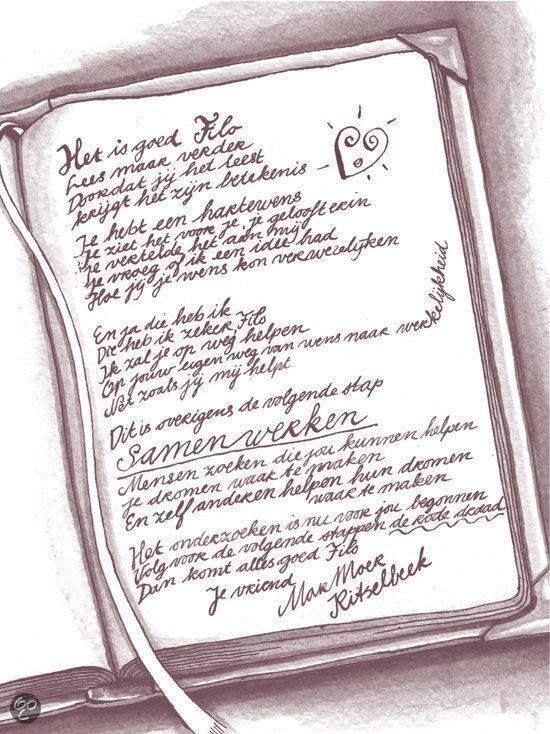 Het is goed Filo
Lees maar verder
Doordat jij het leest
krijgt het zijn betekenis –
Je hebt een hartewens
Je ziet het voor je, je gelooft erin
Je vertelde het aan mij
Je vroeg of ik een idee had
Hoe jij je wens kon verwezelijken
En ja die heb ik
Die heb ik zeker, Filo
Ik zal je op weg helpen
Op jouw eigen weg van wens naar werkelijkheid
Net zoals jij mij helpt
Dit is overigens de volgende stap
Samenwerken
Mensen zoeken die jou kunnen helpen
je dromen waar te maken
En zelf anderen helpen hun dromen
waar te maken
Het onderzoeken is nu voor jou begonnen
Volg voor de volgende stappen de rode draad
Dan komt alles goed Filo
Je vriend
Mar Moer
Ritselbeek